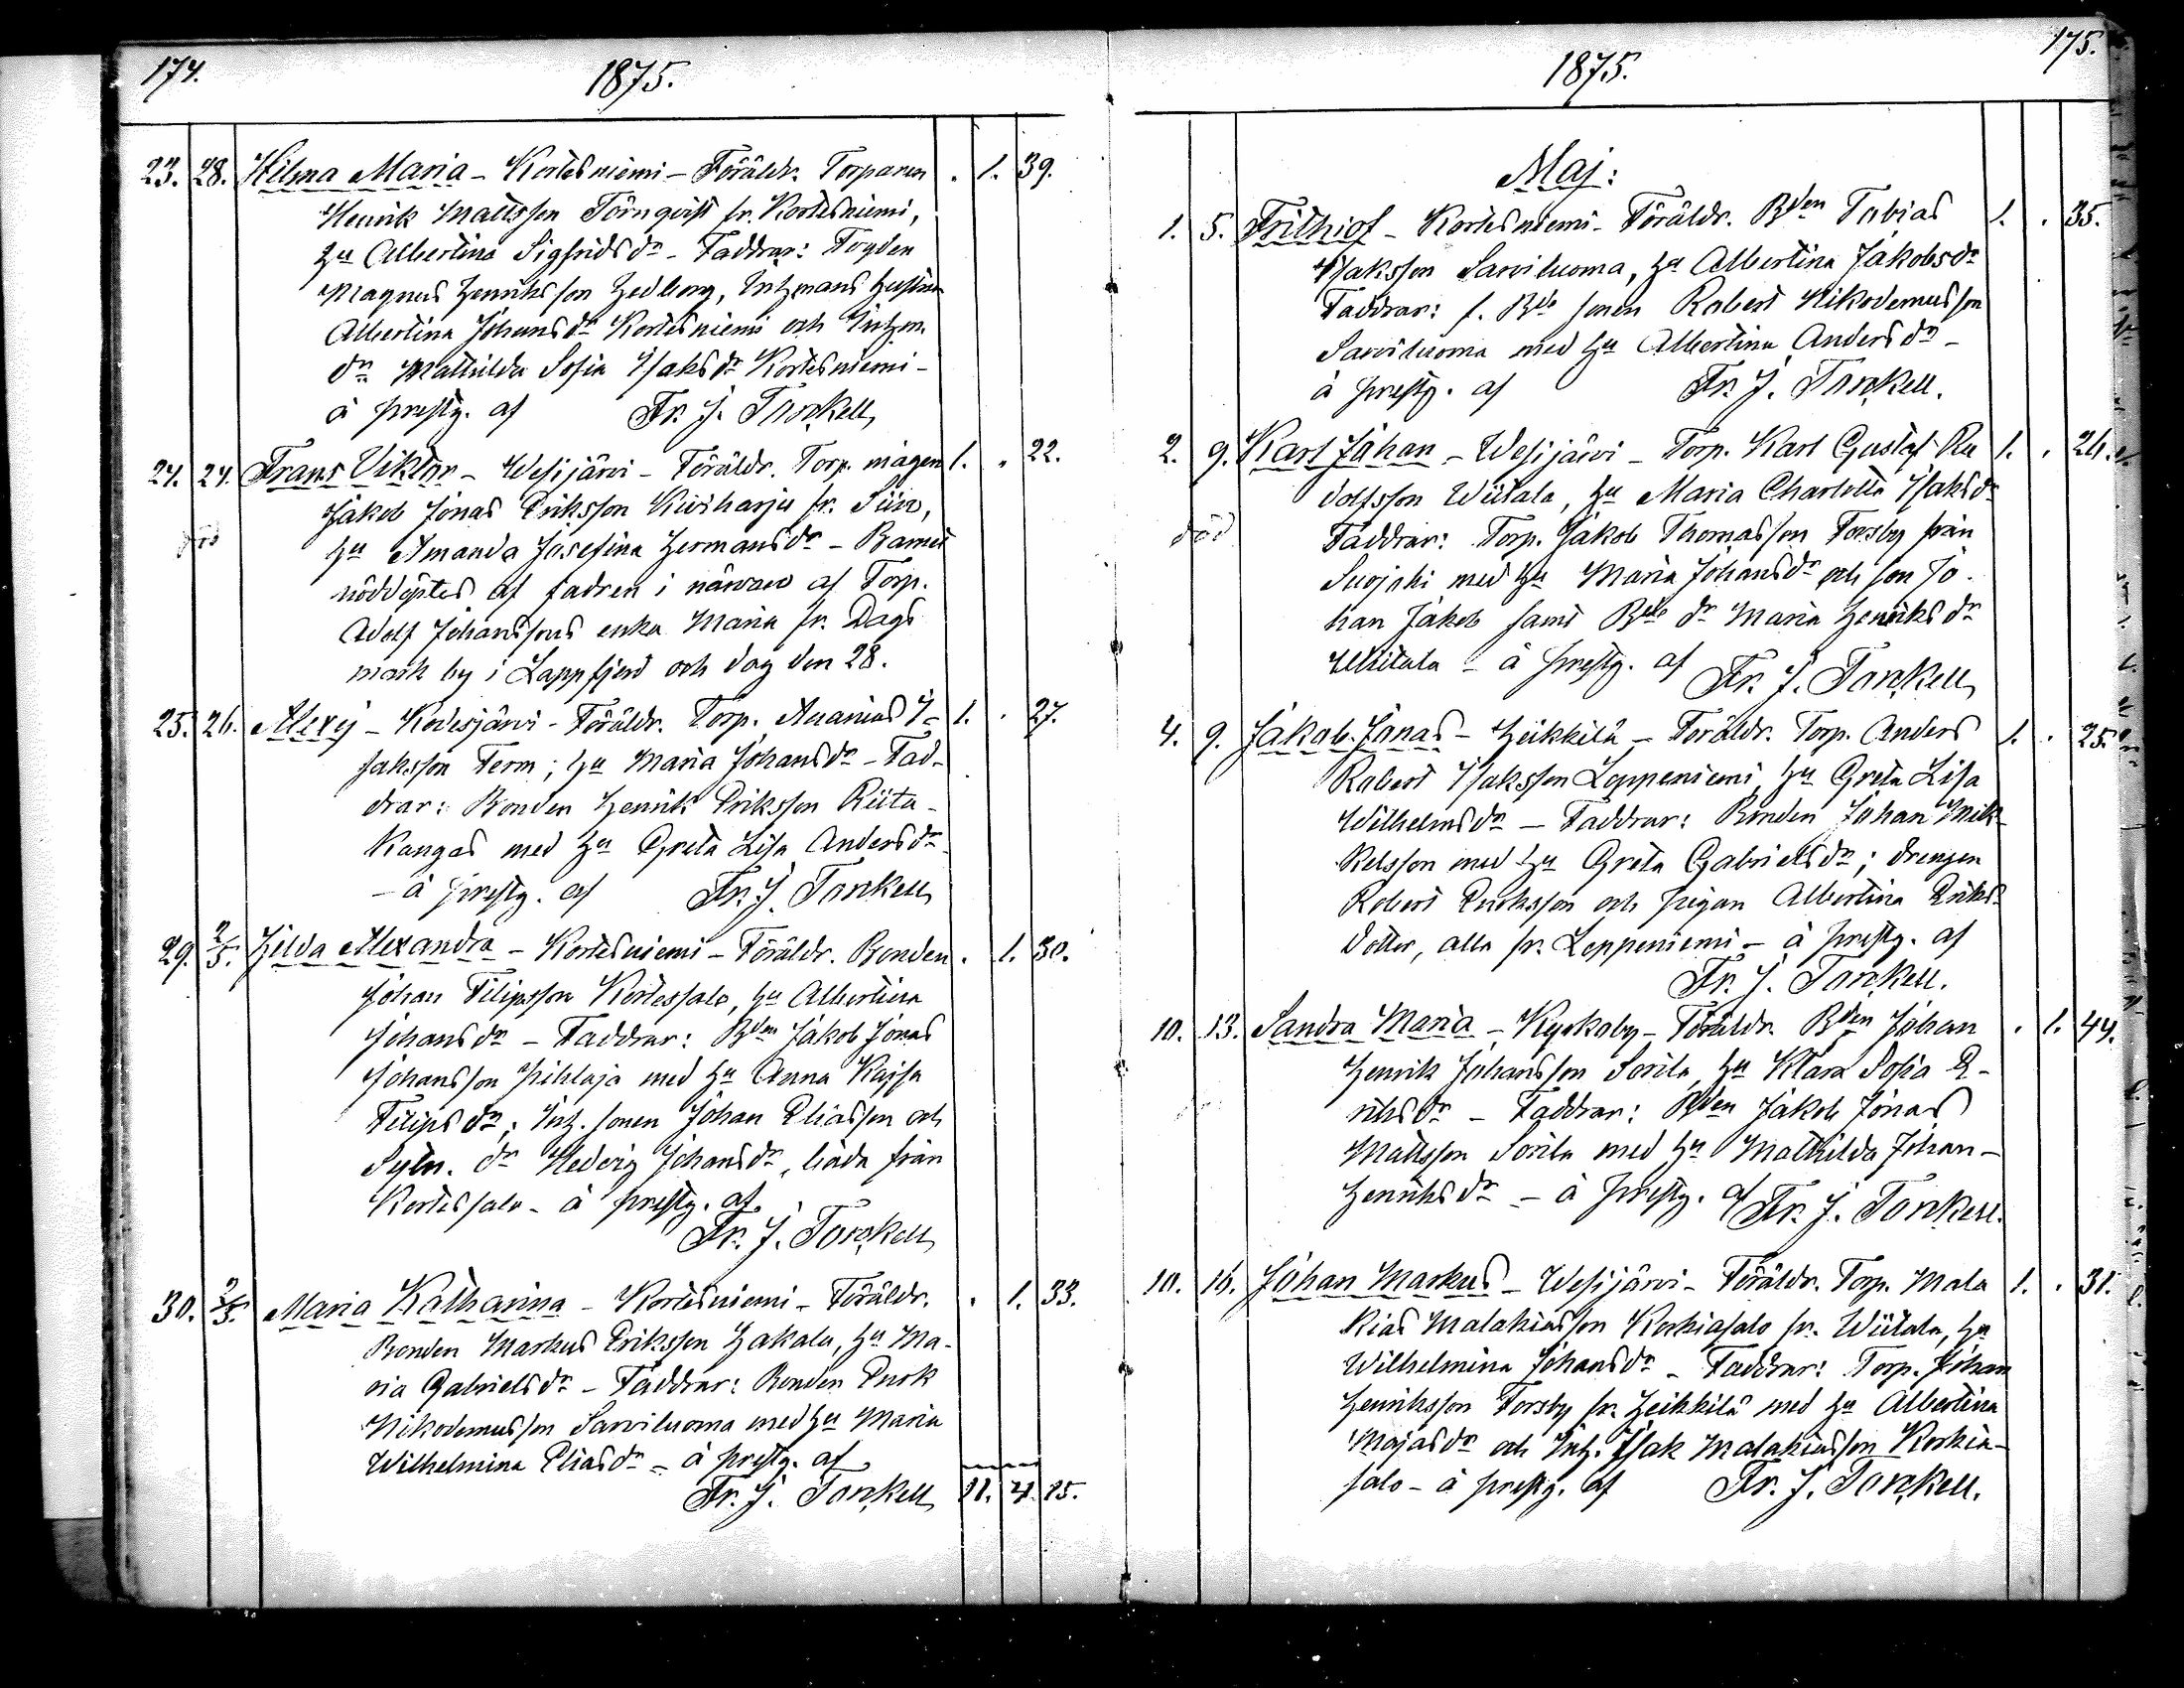 174.
1875.
23. 28. Hilma Maria - Kortesniemi - Föräldr. Torparen . 1. 39.
Henrik Mattsson Törnqvist fr. Kortesniemi,
hu Albertina Sigfridsdr - Faddrar: Fogden
Magnus Henriksson Hedberg, Inhmans hustru
Albertina Johansdr Kortesniemi och Inhm.
dr Mathilda Sofia Isaksdr Kortesniemi -
å prestg. af Fr. J. Torckell
24. 24. Frans Viktor - Wesijärvi - Föräldr. Torp. mågen 1. . 22.
Jakob Jonas Eriksson Kiviharju fr.
död
hu Amanda Josefina Hermansdr - Barnet
nöddöptes af fadren i närvaro af Torp.
Adolf Johanssons enka Maria fr. Dags
mark by i Lappfjerd och dag den 28.
25. 26. Alexej - Kodesjärvi - Föräldr. Torp. Ananias I- 1. . 27.
saksson Term; hu Maria Johansdr - Fad-
drar: Bonden Henrik Eriksson Riita-
kangas med hu Greta Lisa Andersdr
- å prestg. af Fr. J. Torckell
29. 2/5. Hilda Alexandra - Kortesniemi - Föräldr. Bonden . 1. 30.
Johan Filipsson Kortessalo, hu Albertina
Johansdr - Faddrar: Bden Jakob Jonas
Johansson Pihlaja med hu Anna Kajsa
Filipsdr; Inh. sonen Johan Eliasson och
Sytn. dr Hedvig Johansdr, båda från
Kortessalo - å prestg. af
Fr. J. Torckell
30. 2/5. Maria Katharina - Kortesniemi - Föräldr. . 1. 33.
Bonden Markus Eriksson Hakala, hu Ma-
ria Gabrielsdr - Faddrar: Bonden Enok
Nikodemusson Sarviluoma med hu Maria
Wilhelmina Eliasdr - å prestg. af
Fr. J. Torckell 11. 4. 15.
175.
1875.
Maj:
1. 5. Frithiof - Kortesniemi - Föräldr. Bden Tobias 1. . 35.
Isaksson Sarviluoma, hu Albertina Jakobsdr
Faddrar: f. Bde sonen Robert Nikodemusson
Sarviluoma med hu Albertina Andersdr -
å prestg. af Fr. J. Torckell.
2. 9. Karl Johan - Wesijärvi - Torp. Karl Gustaf Ru 1. . 26.
dolfsson Wiitala, hu Maria Charlotta Isaksdr
död
Faddrar: Torp. Jakob Thomasson Forsby från
Suojoki med hu Maria Johansdr och son Jo-
han Jakob samt Bde dr Maria Henriksdr
Wiitala - å prestg. af Fr. J. Torckell
4. 9. Jakob Jonas - Heikkilä - Föräldr. Torp. Anders 1. . 25.
Robert Isaksson Leppeniemi, hu Greta Lisa
Wilhelmsdr - Faddrar: Bonden Johan Mik-
kelsson med hu Greta Gabrielsdr; drengen
Robert Enoksson och pigan Albertina Eriks-
dotter, alla fr. Leppeniemi - å prestg. af
Fr. J. Torckell.
10. 13. Sandra Maria - Kyrkoby - Föräldr. Bden Johan . 1. 44.
Henrik Johansson Sorila, hu Klara Sofia E-
riksdr - Faddrar: Bden Jakob Jonas
Mattsson Sorila med hu Mathilda Johan-
Henriksdr - å prestg. af Fr. J. Torckell.
10. 16. Johan Markus - Wesijärvi - Föräldr. Torp. Mala 1. . 31.
kias Malakiasson Korkiasalo fr. Wiitala, hu
Wilhelmina Johansdr - Faddrar: Torp. Johan
Henriksson Forsby fr. Heikkilä med hu Albertina
Majasdr och Inh. Isak Malakiasson Korkia-
salo - å prestg. af Fr. J. Torckell.